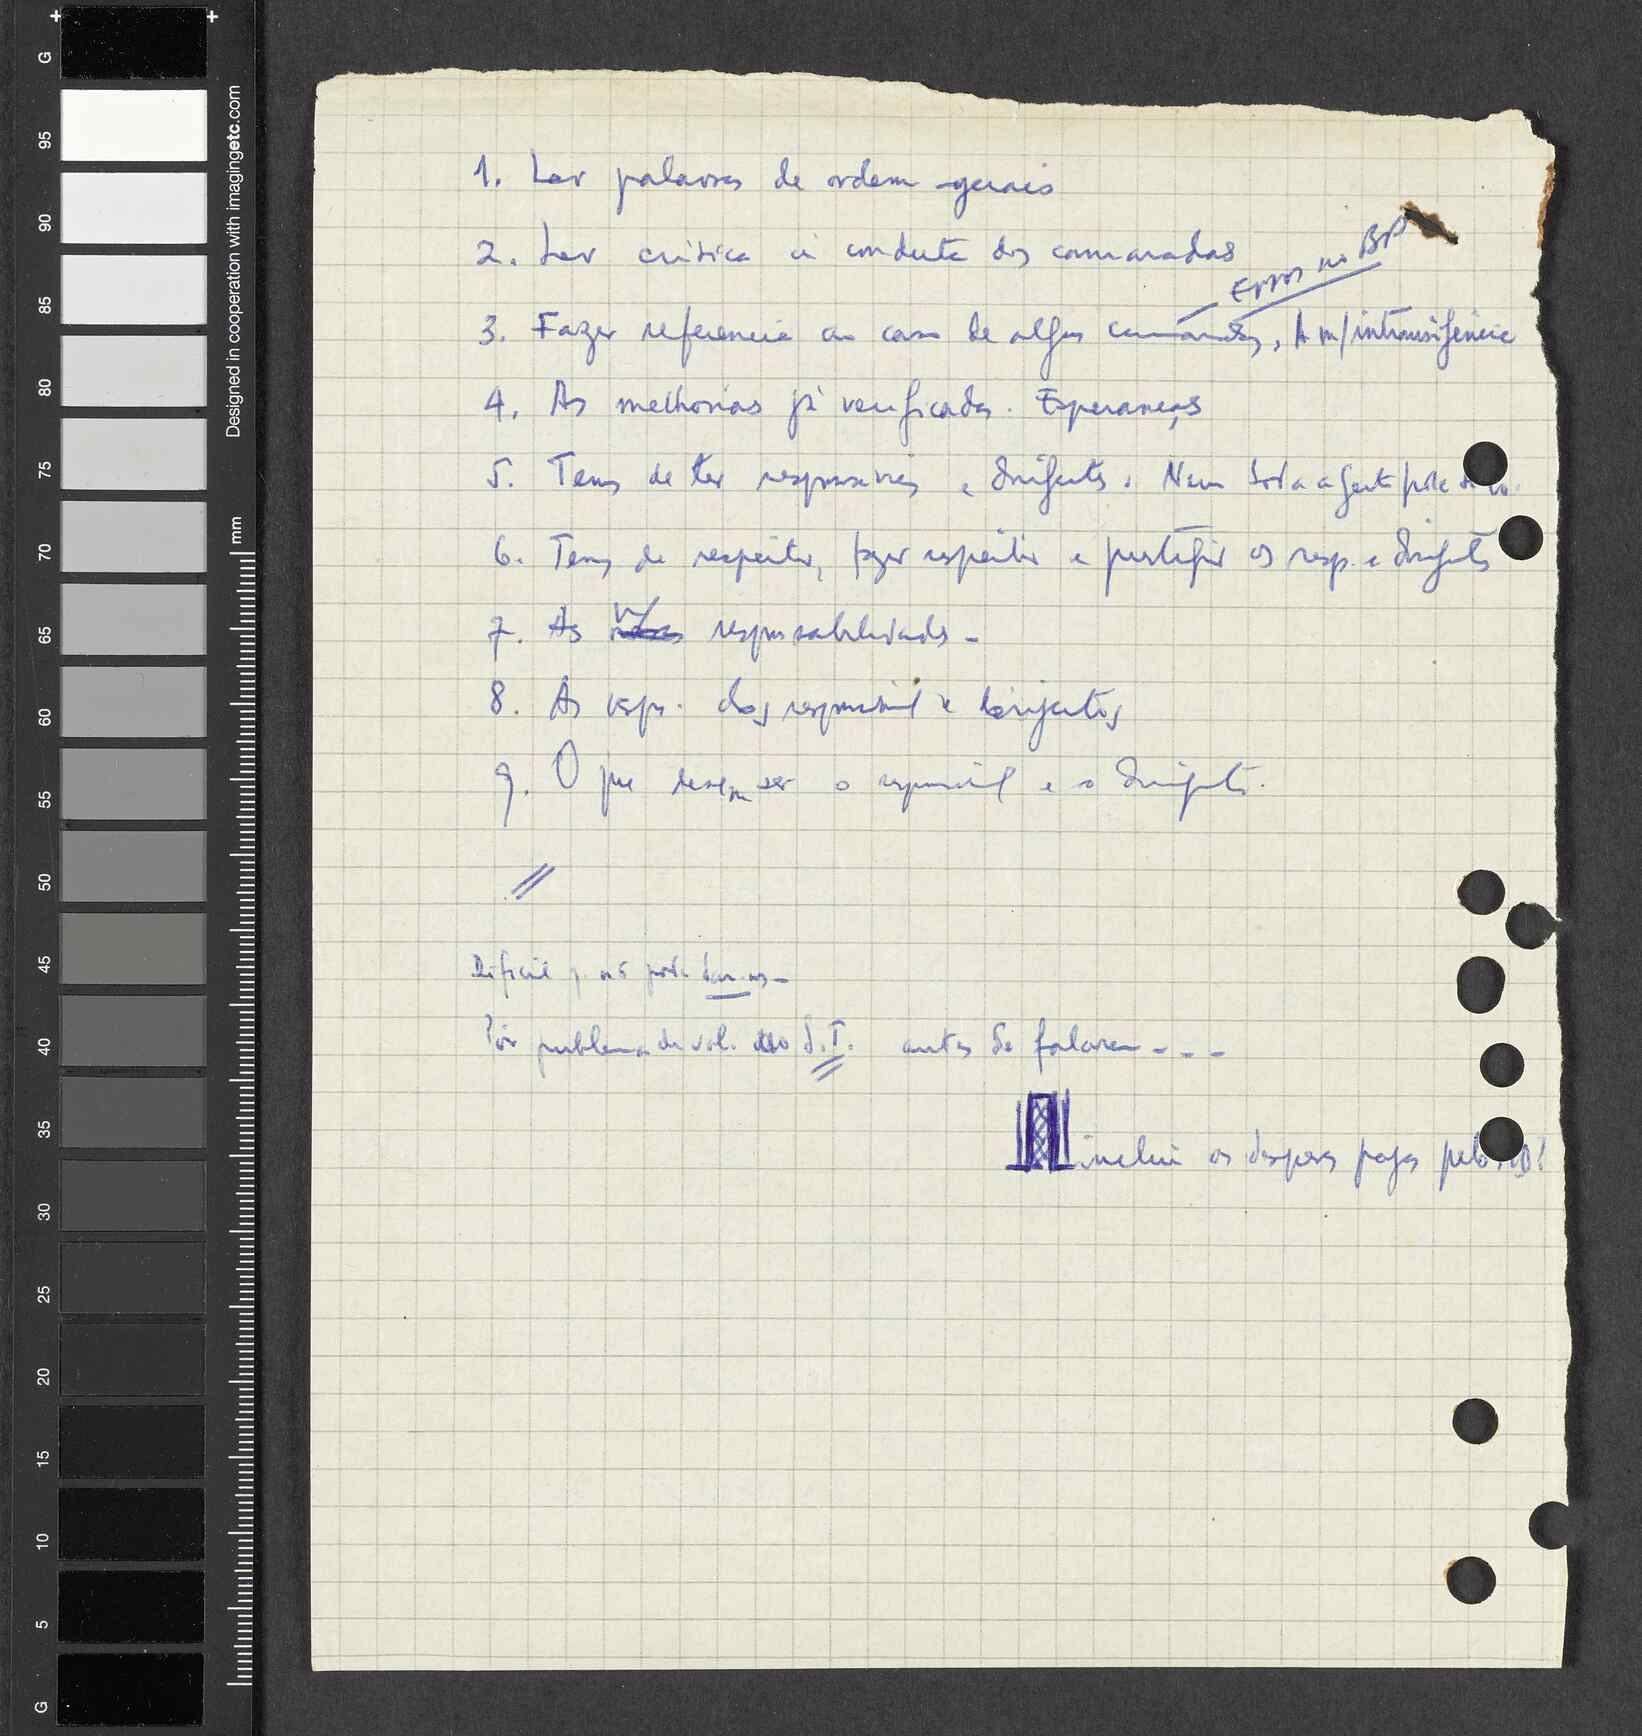 1. Ler palavras de ordem gerais
2. Ler crítica à conduta dos camaradas
Erros no BP
3. Fazer referencia ao caso de alguns camaradas, A m/intransigência
4. As melhorias já verificadas. Esperanças
5. Temos de ter responsáveis e dirigentes. Nem toda a gente pode
6. Temos de respeitar, fazer respeitar e prestigiar os resp. e dirigentes
7. As responsabilidades -
8. As resp. dos responsável e dirigentes
9. O que devem ser o responsável e o dirigente.
//
Dificil q. nós pode dar-nos -
Pôr problema de vol. do S.T. antes de falarem - - -
inclui as despesas pagas pelo
G
95
90
85
80
75
70
65
60
55
50
45
40
35
30
25
20
15
10
5
G
Designed in cooperation with imagingetc.com
mm